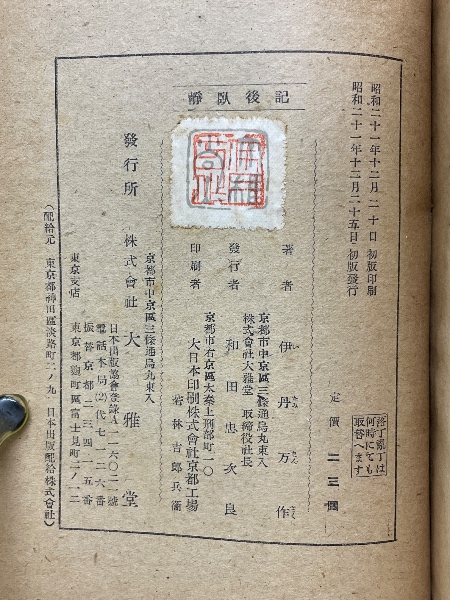 昭和二十一年十二月二十日 初版印刷
昭和二十一年十二月二十五日 初版發行
落丁亂丁は
何時にても
取替へます
定價 二三圓
靜臥後記
著者 伊丹万作
い たみ まん さく
京都市中京區三條通烏丸東入
株式會社大雅堂 取締役社長
發行者 和田忠次良
京都市右京區太秦上刑部町一〇
大日本印刷株式會社京都工場
印刷者 若林吉郎兵衞
京都市中京區三條通烏丸東入
發行所 株式會社 大雅堂
日本出版協會會員A一一六〇二一號
電話本局(2)代七一二六番
振替京都二三四一五番
東京支店 東京都麴町區富士見町二ノ一二
(配給元 東京都神田區淡路町二ノ九 日本出版配給株式會社)